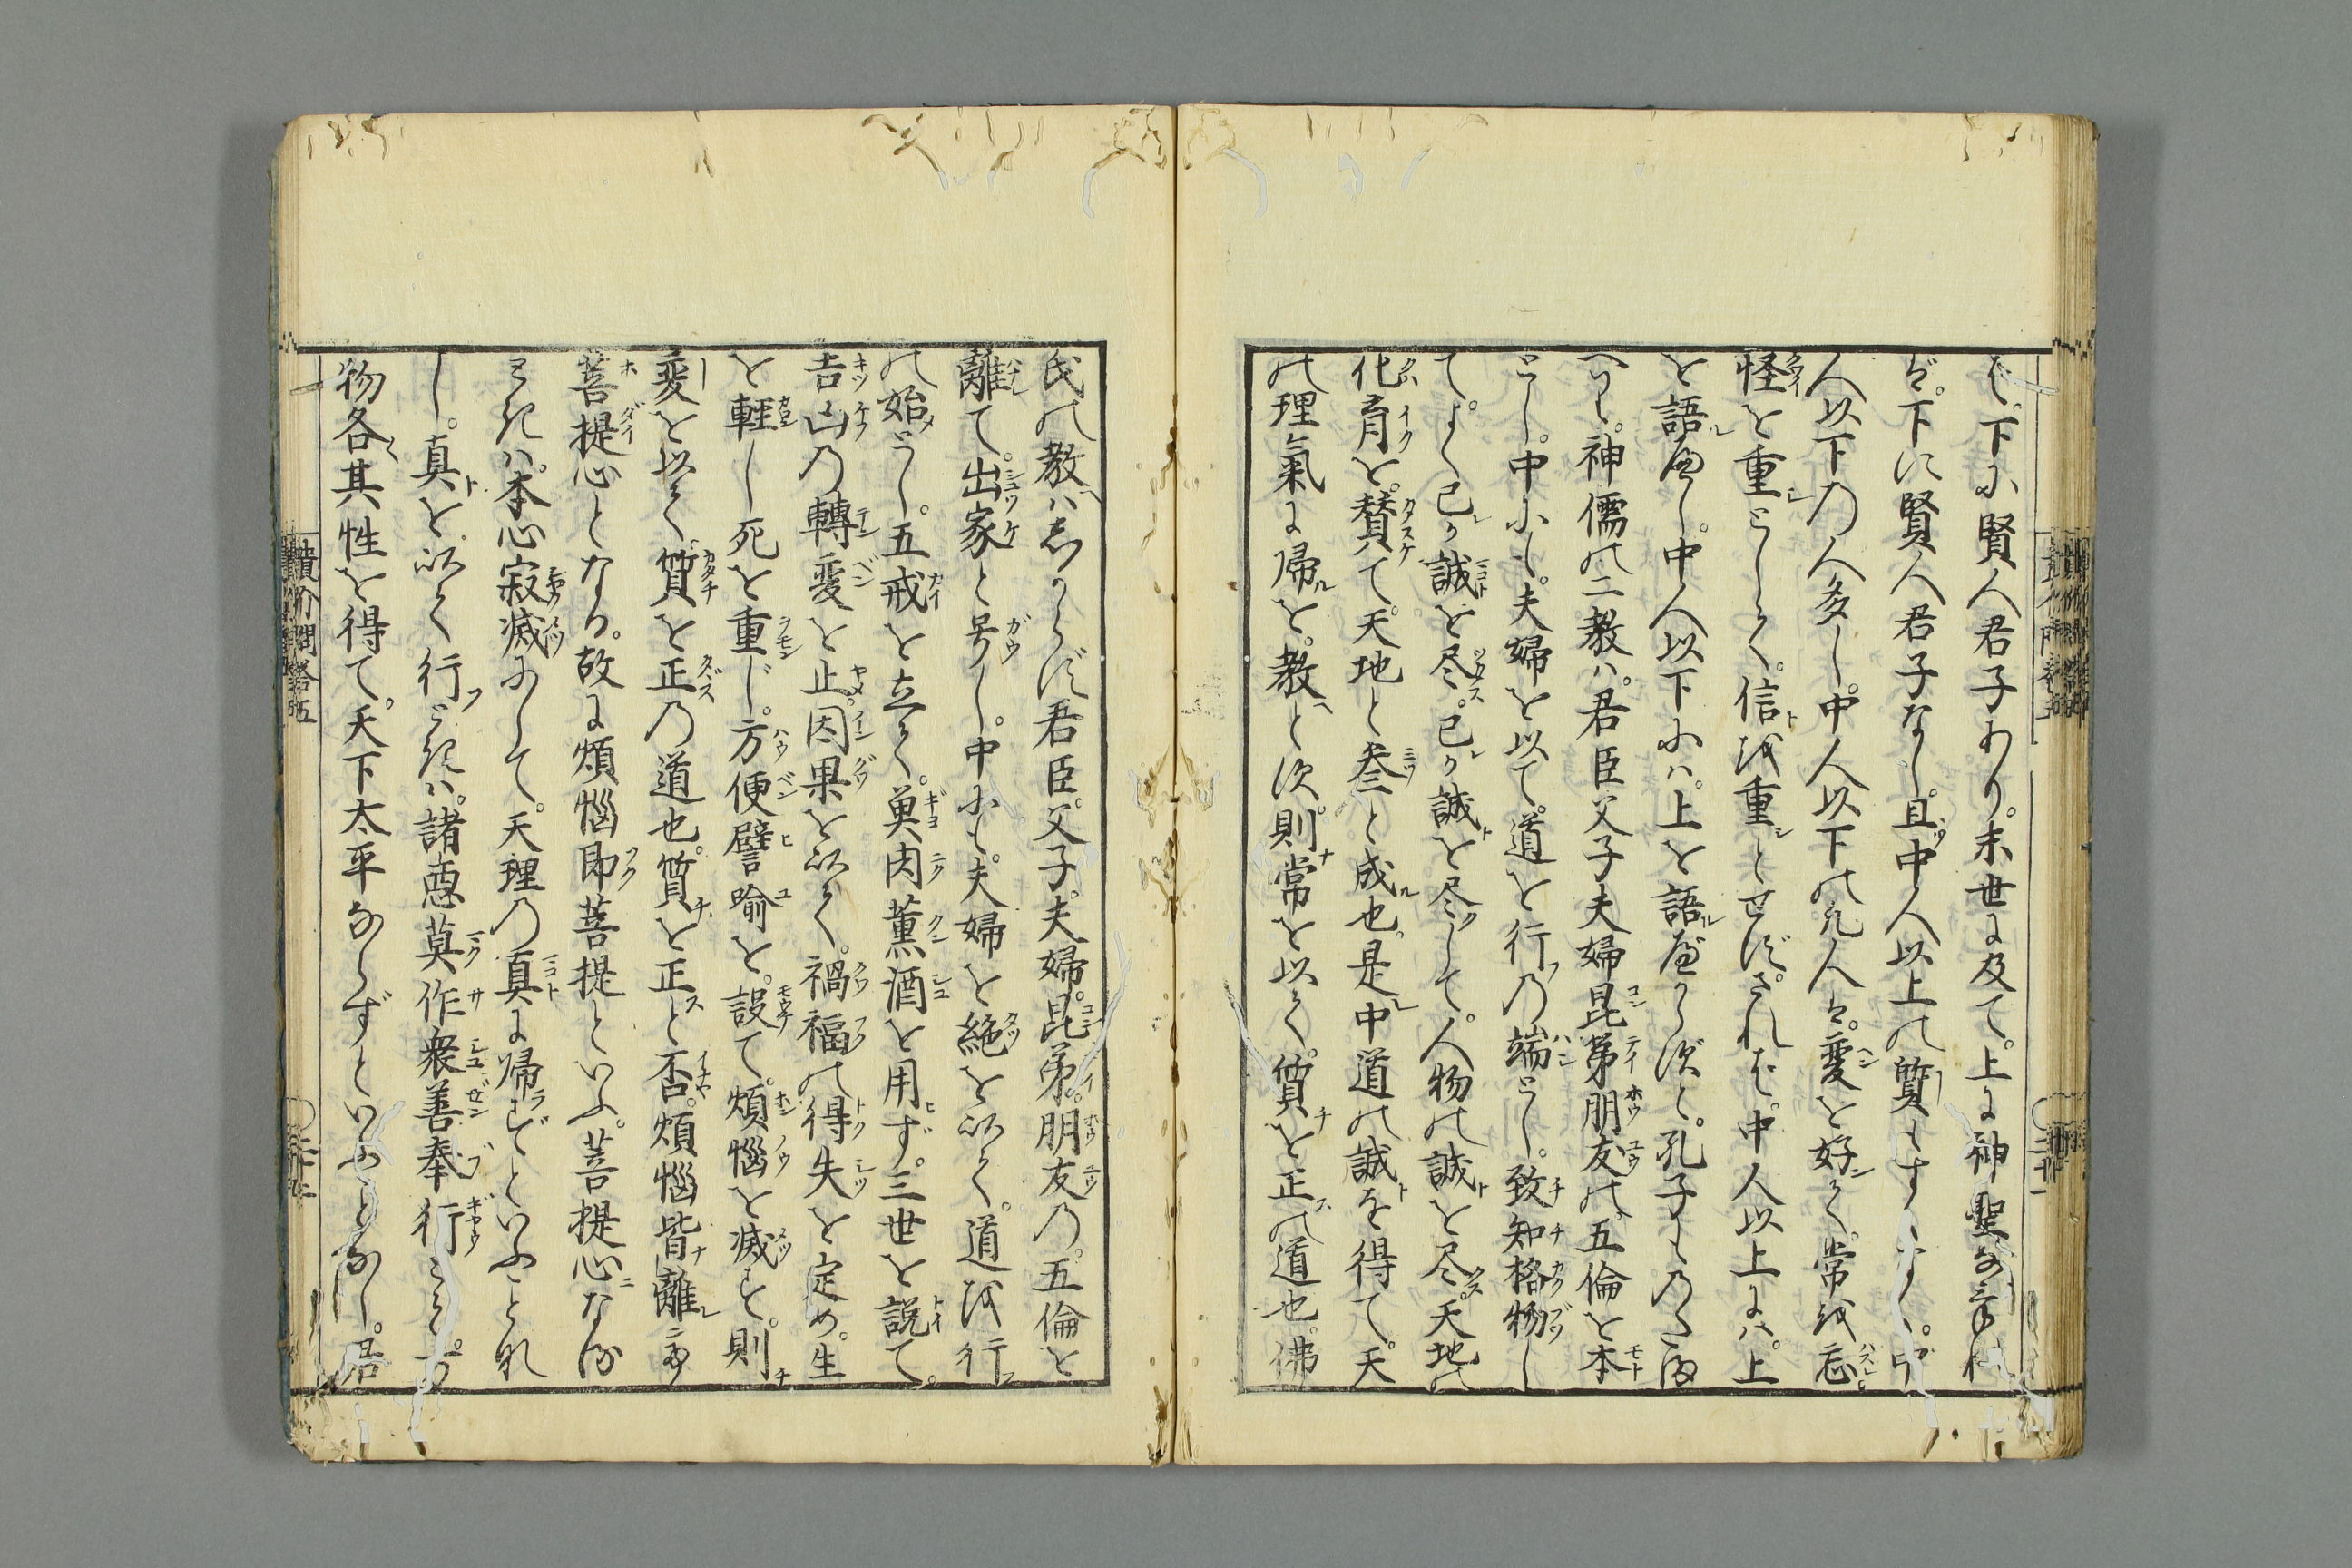 ば。下に賢人君子あり。末世に及て。上に神聖なけれ
ば。下に賢人君子なし。且中人以上の質もすくなく。中
人以下の人多し。中人以下の凡人は。変を好て。常を忘
怪を重として。信を重とせず。されば。中人以上には。上
を語べし。中人以下には。上を語べからずと。孔子ものたま
へり。神儒の二教は。君臣父子夫婦昆弟朋友の五倫を本
とし。中にも。夫婦を以て。道を行の端とし。致知格物し
て。よく己が誠を尽。己が誠を尽して。人物の誠を尽。天地の
化育を。賛て。天地と叅と成也。是中道の誠を得て。天
の理氣に帰を。教とす。則常を以て。質を正の道也。佛
氏の教はしからず君臣。父子。夫婦。昆弟。朋友の。五倫を
離て。出家と号し。中にも。夫婦を絶を以て。道を行
の始とし。五戒を立て。魚肉薫酒を用ず。三世を説て。
吉凶の轉変を止。因果を以て。禍福の得失を定め。生
を軽し死を重じ。方便譬喻を。設て。煩惱を滅す。則
変を以て。質を正の道也。質を正と否。煩惱皆離
菩提心となる。故に煩惱即菩提といふ。菩提心なる
ときは。本心寂滅にして。天理の真に帰らずといふことな
し。真を以て行ときは。諸悪莫作衆善奉行
物各其性を得て。天下太平ならずといふことなし。是
問答五